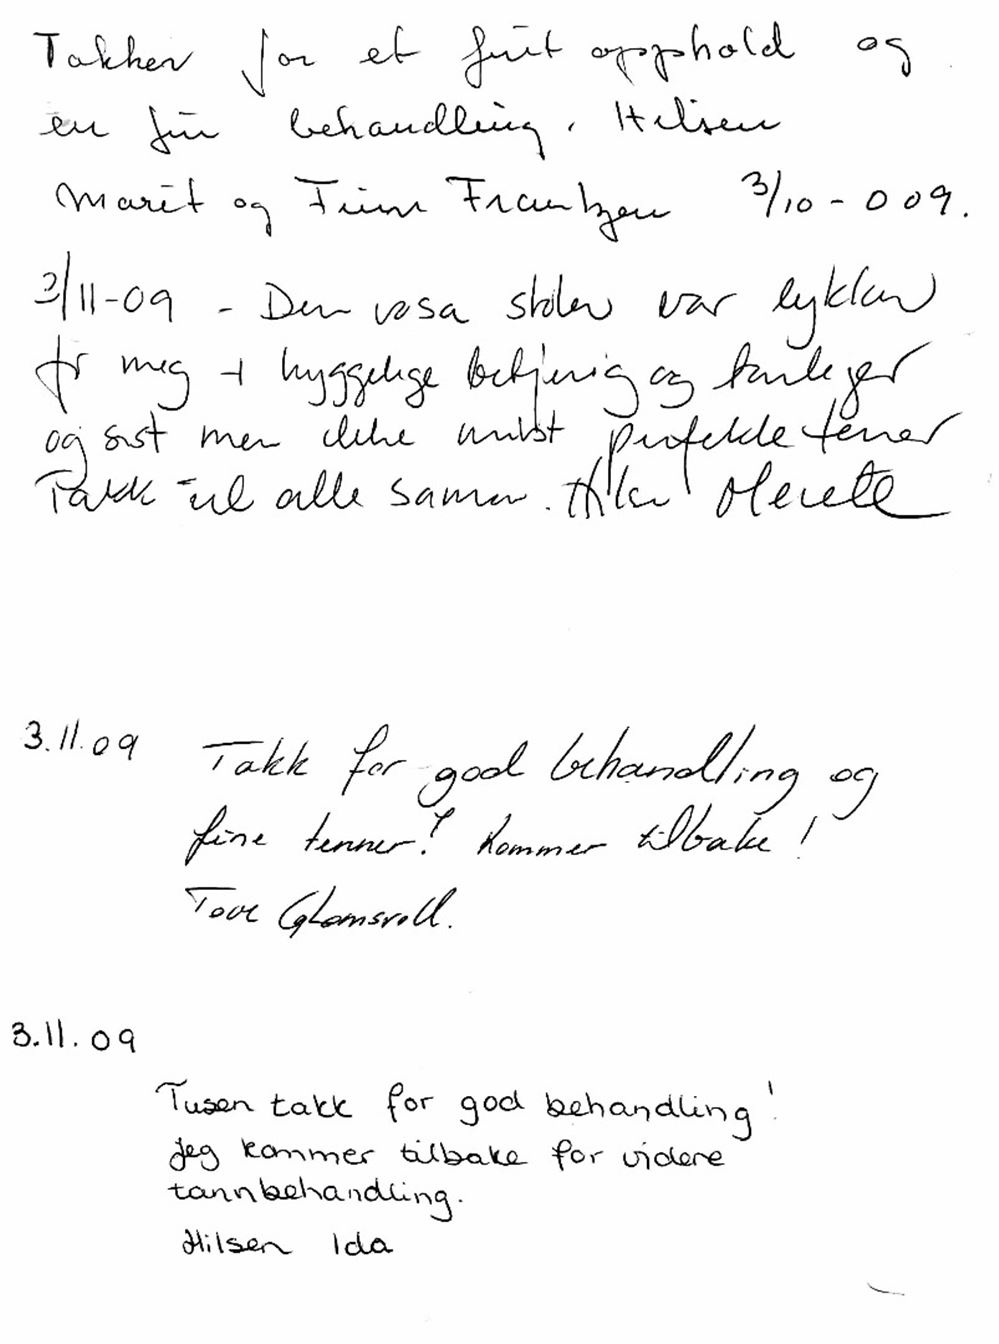 Takker for et fint opphold og
en fin behandling. Hilsen
Marit og Finn Frantzen 3/10-009.
3/11-09 - Den rosa stolen var lykken
for meg + hyggelige betjenig og tannleger
og sist men ikke minst perfekte tenner
Takk til alle saman. Hilsen Merete
3.11.09 Takk for god behandling og
fine tenner! Kommer tilbake!
Tove
3.11.09
Tusen takk for god behandling!
Jeg kommer tilbake for videre
tannbehandling.
Hilsen Ida